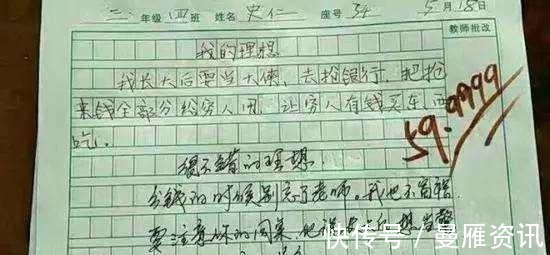 三 年级 四 班 姓名 史仁 座号 54 5月18日
教师批改
我的理想
我长大后要当大侠，去抢银行，把抢
来钱全部分给穷人用，让穷人有钱买东西
吃。
59.9999
很不错的理想
分钱的时候别忘了老师。我也不富裕
要注意你的同桌，他
想当警
快传号／曼雁资讯